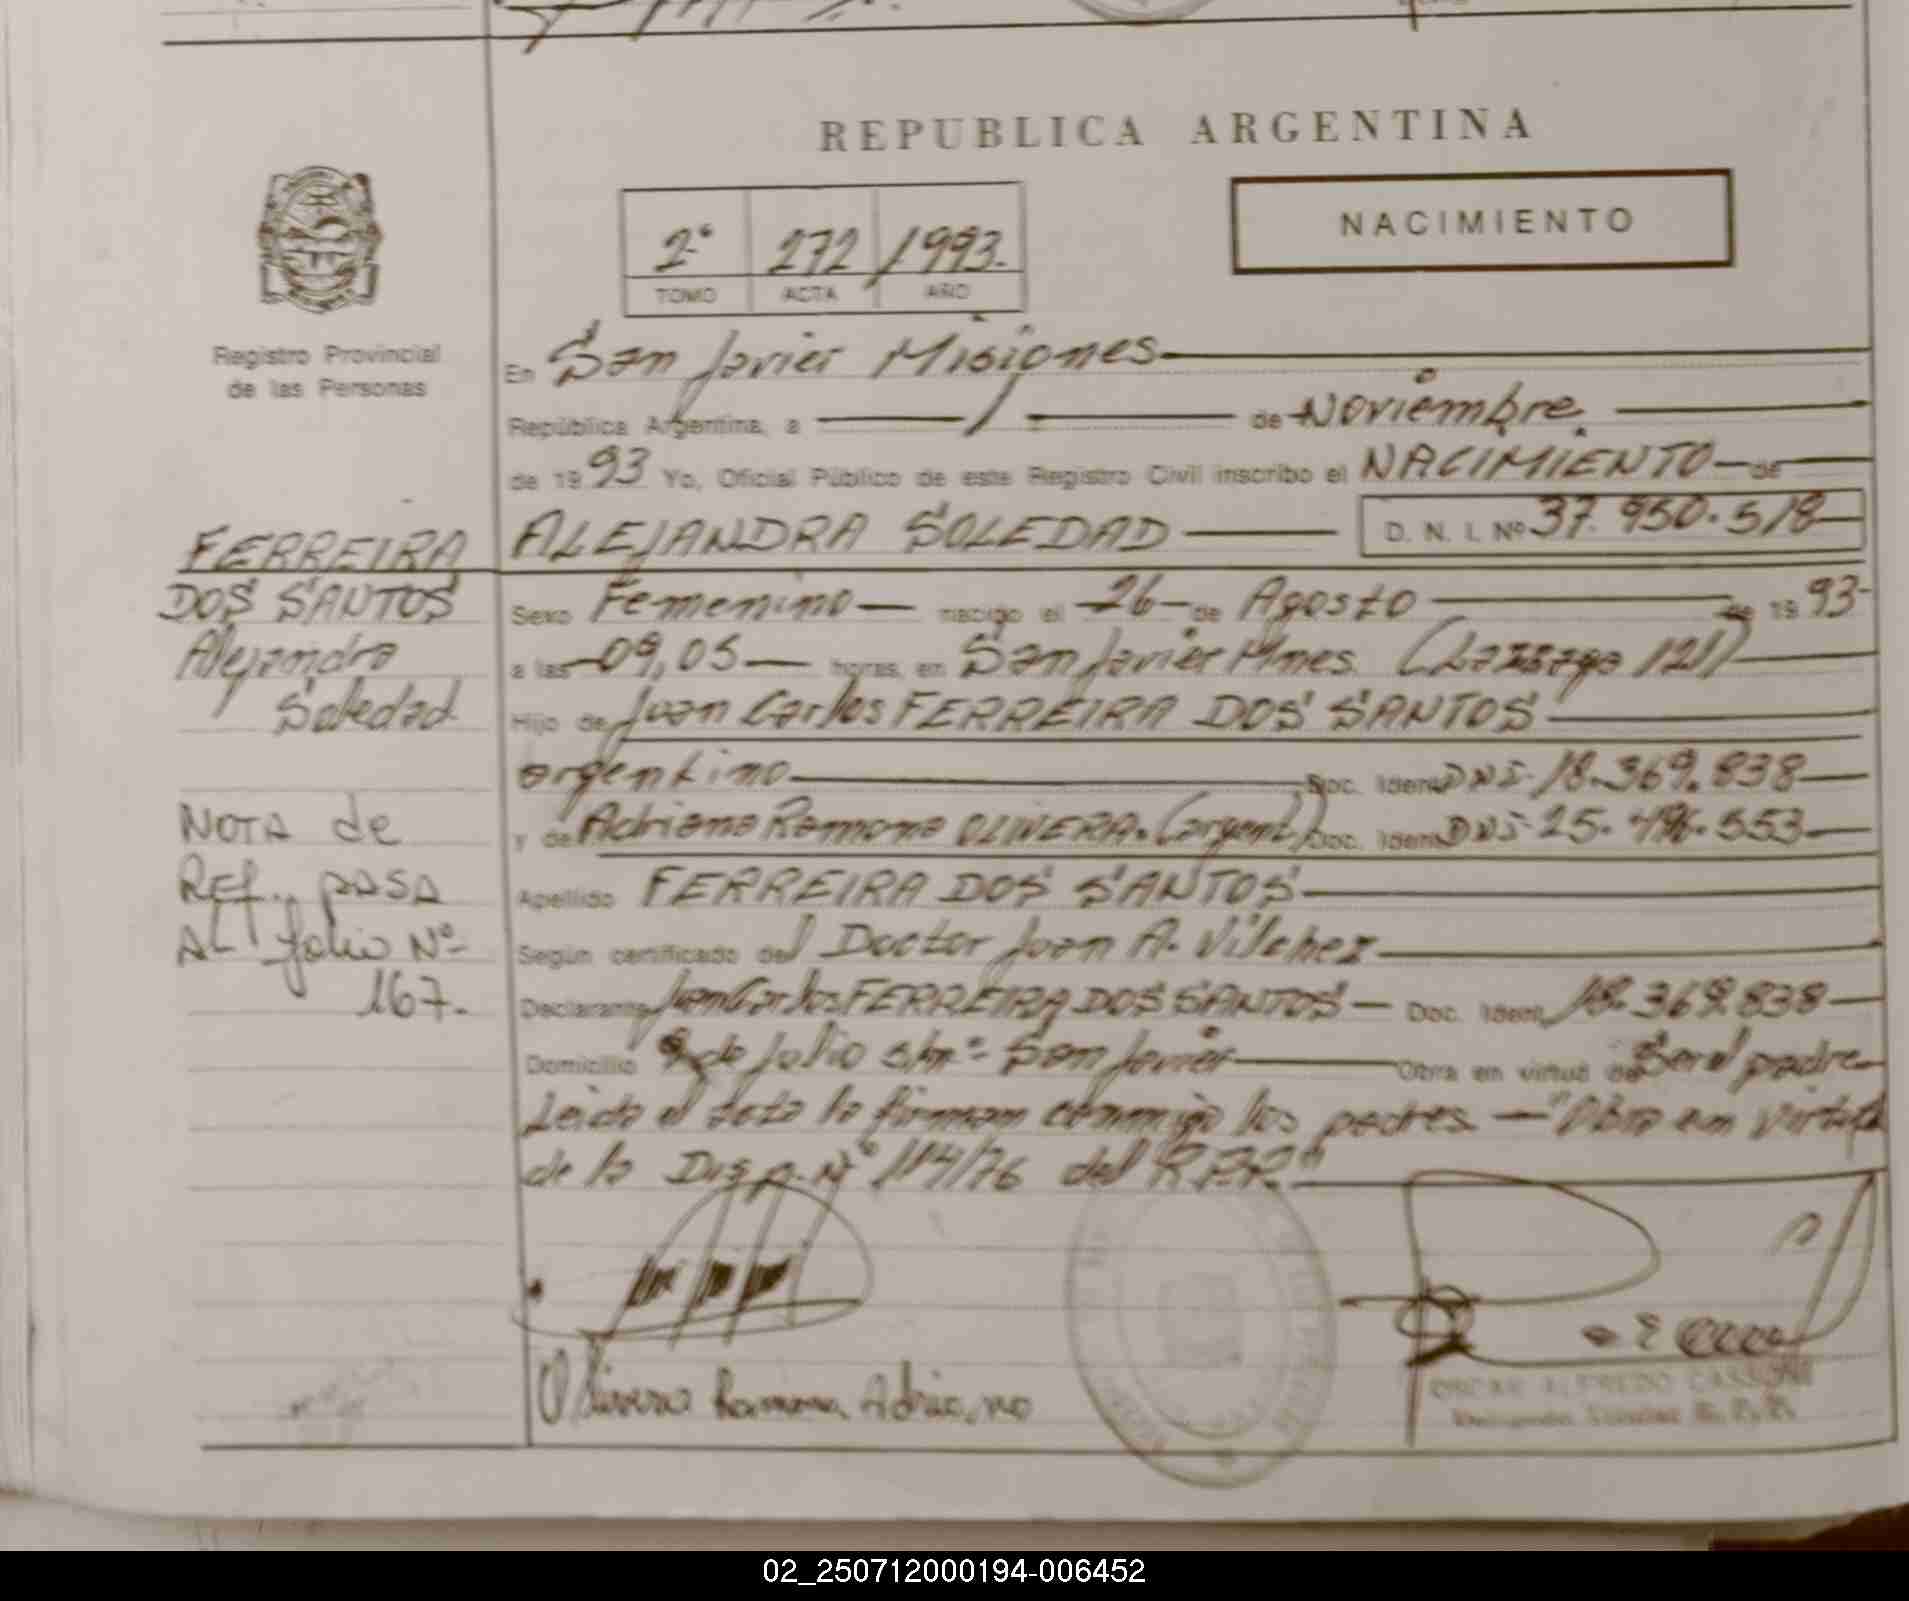 REPUBLICA ARGENTINA
NACIMIENTO
2º 272 1993.
TOMO ACTA AÑO
Registro Provincial
de las Personas
En San Javier Misiones
República Argentina, a 1 de Noviembre
de 1993 Yo, Oficial Público de este Registro Civil inscribo el NACIMIENTO de
ALEJANDRA SOLEDAD D. N. I. Nº 37.950.518
FERREIRA
DOS SANTOS
Alejandra
Soledad
Sexo Femenino nacido el 26 de Agosto de 1993
a las 09,05 horas, en San Javier Mnes. 121)
Hijo de Juan Carlos FERREIRA DOS SANTOS
argentino Doc. Ident. DNI 18.369.838
y de Adriana Ramona OLIVERA. (argent.) Doc. Ident. DNI 25.496.553
Apellido FERREIRA DOS SANTOS
Según certificado del Doctor Juan A. Vilchez
Declarante Juan Carlos FERREIRA DOS SANTOS Doc. Ident. 18.369.838
Domicilio 9 de Julio s/nº San Javier Obra en virtud de Ser el padre
Leida el acta la firman conmigo los padres — "Obra en virtud
de la Disp. Nº 114/76 del R.P.P."
NOTA de
REf. PASA
AL folio Nº
167.
Olivera Ramona Adriana
OSCAR ALFREDO
02_250712000194-006452